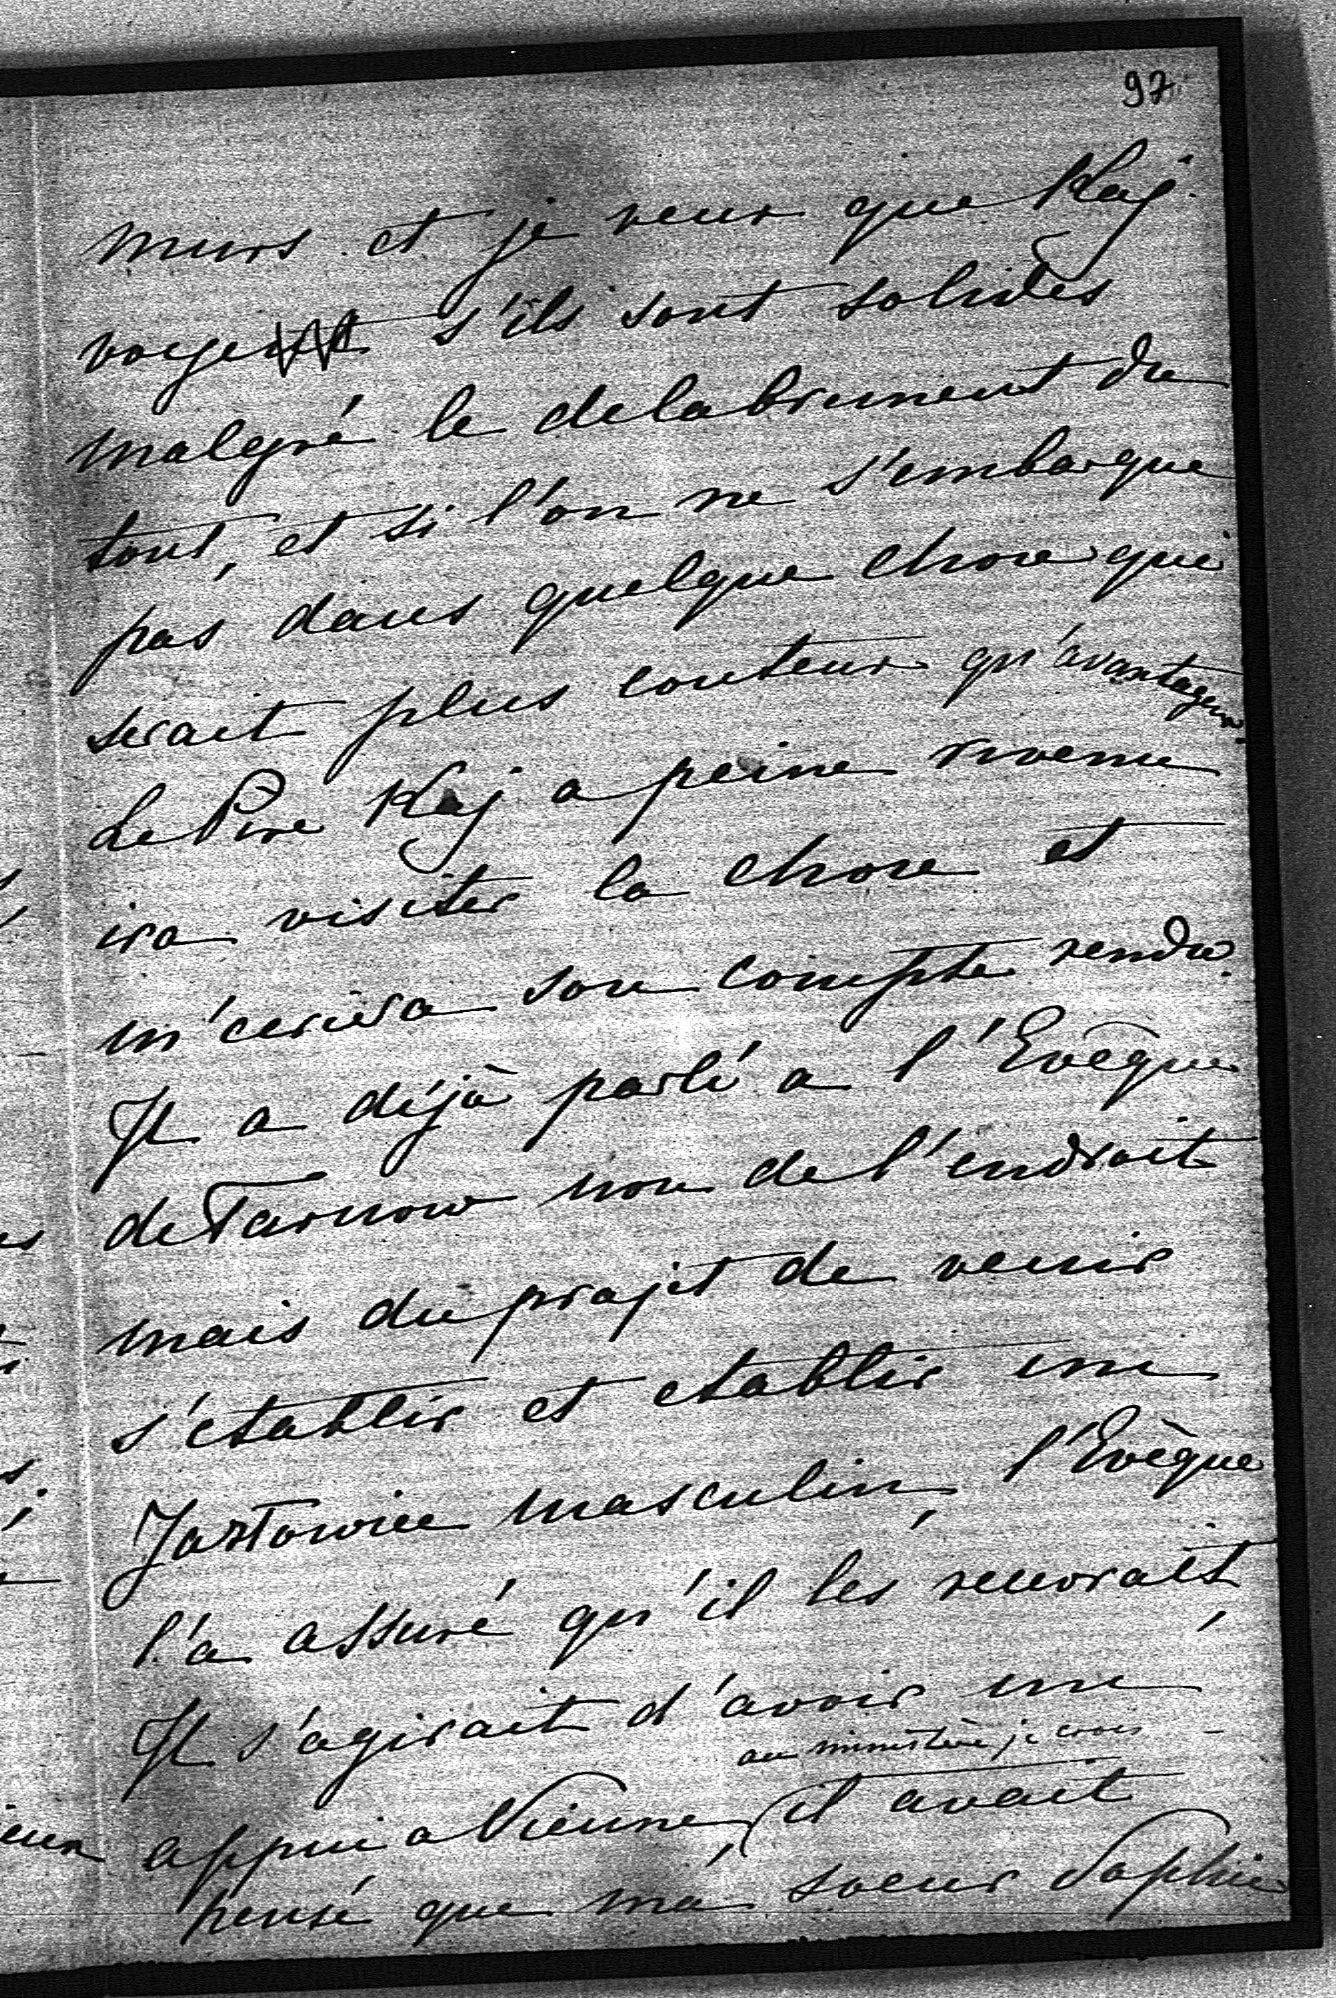 97
murs et je veux que Kaj.
voye s'ils sont solides
malgré le delabrement du
tout, et si l'on ne s'embarque
pas dans quelque chose qui
serait plus couteux qu'avantageux.
Le Père Kaj a peine revenu
ira visiter la chose et
m'ecrira son compte rendu.
Il a déjà parlé a l'Evêque
de Tarnow non de l'endroit
mais du projet de venir
s'etablir et etablir un
Jazłowiec masculin, l'Evèque
l'a assuré qu'il les recevrait,
Il s'agirait d'avoir un
au ministère je crois
appui a Vienne, (il avait
pensé que ma soeur Sophie